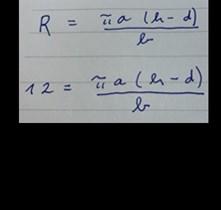 R = πa (h-d) / b
12 = πa (h-d) / b